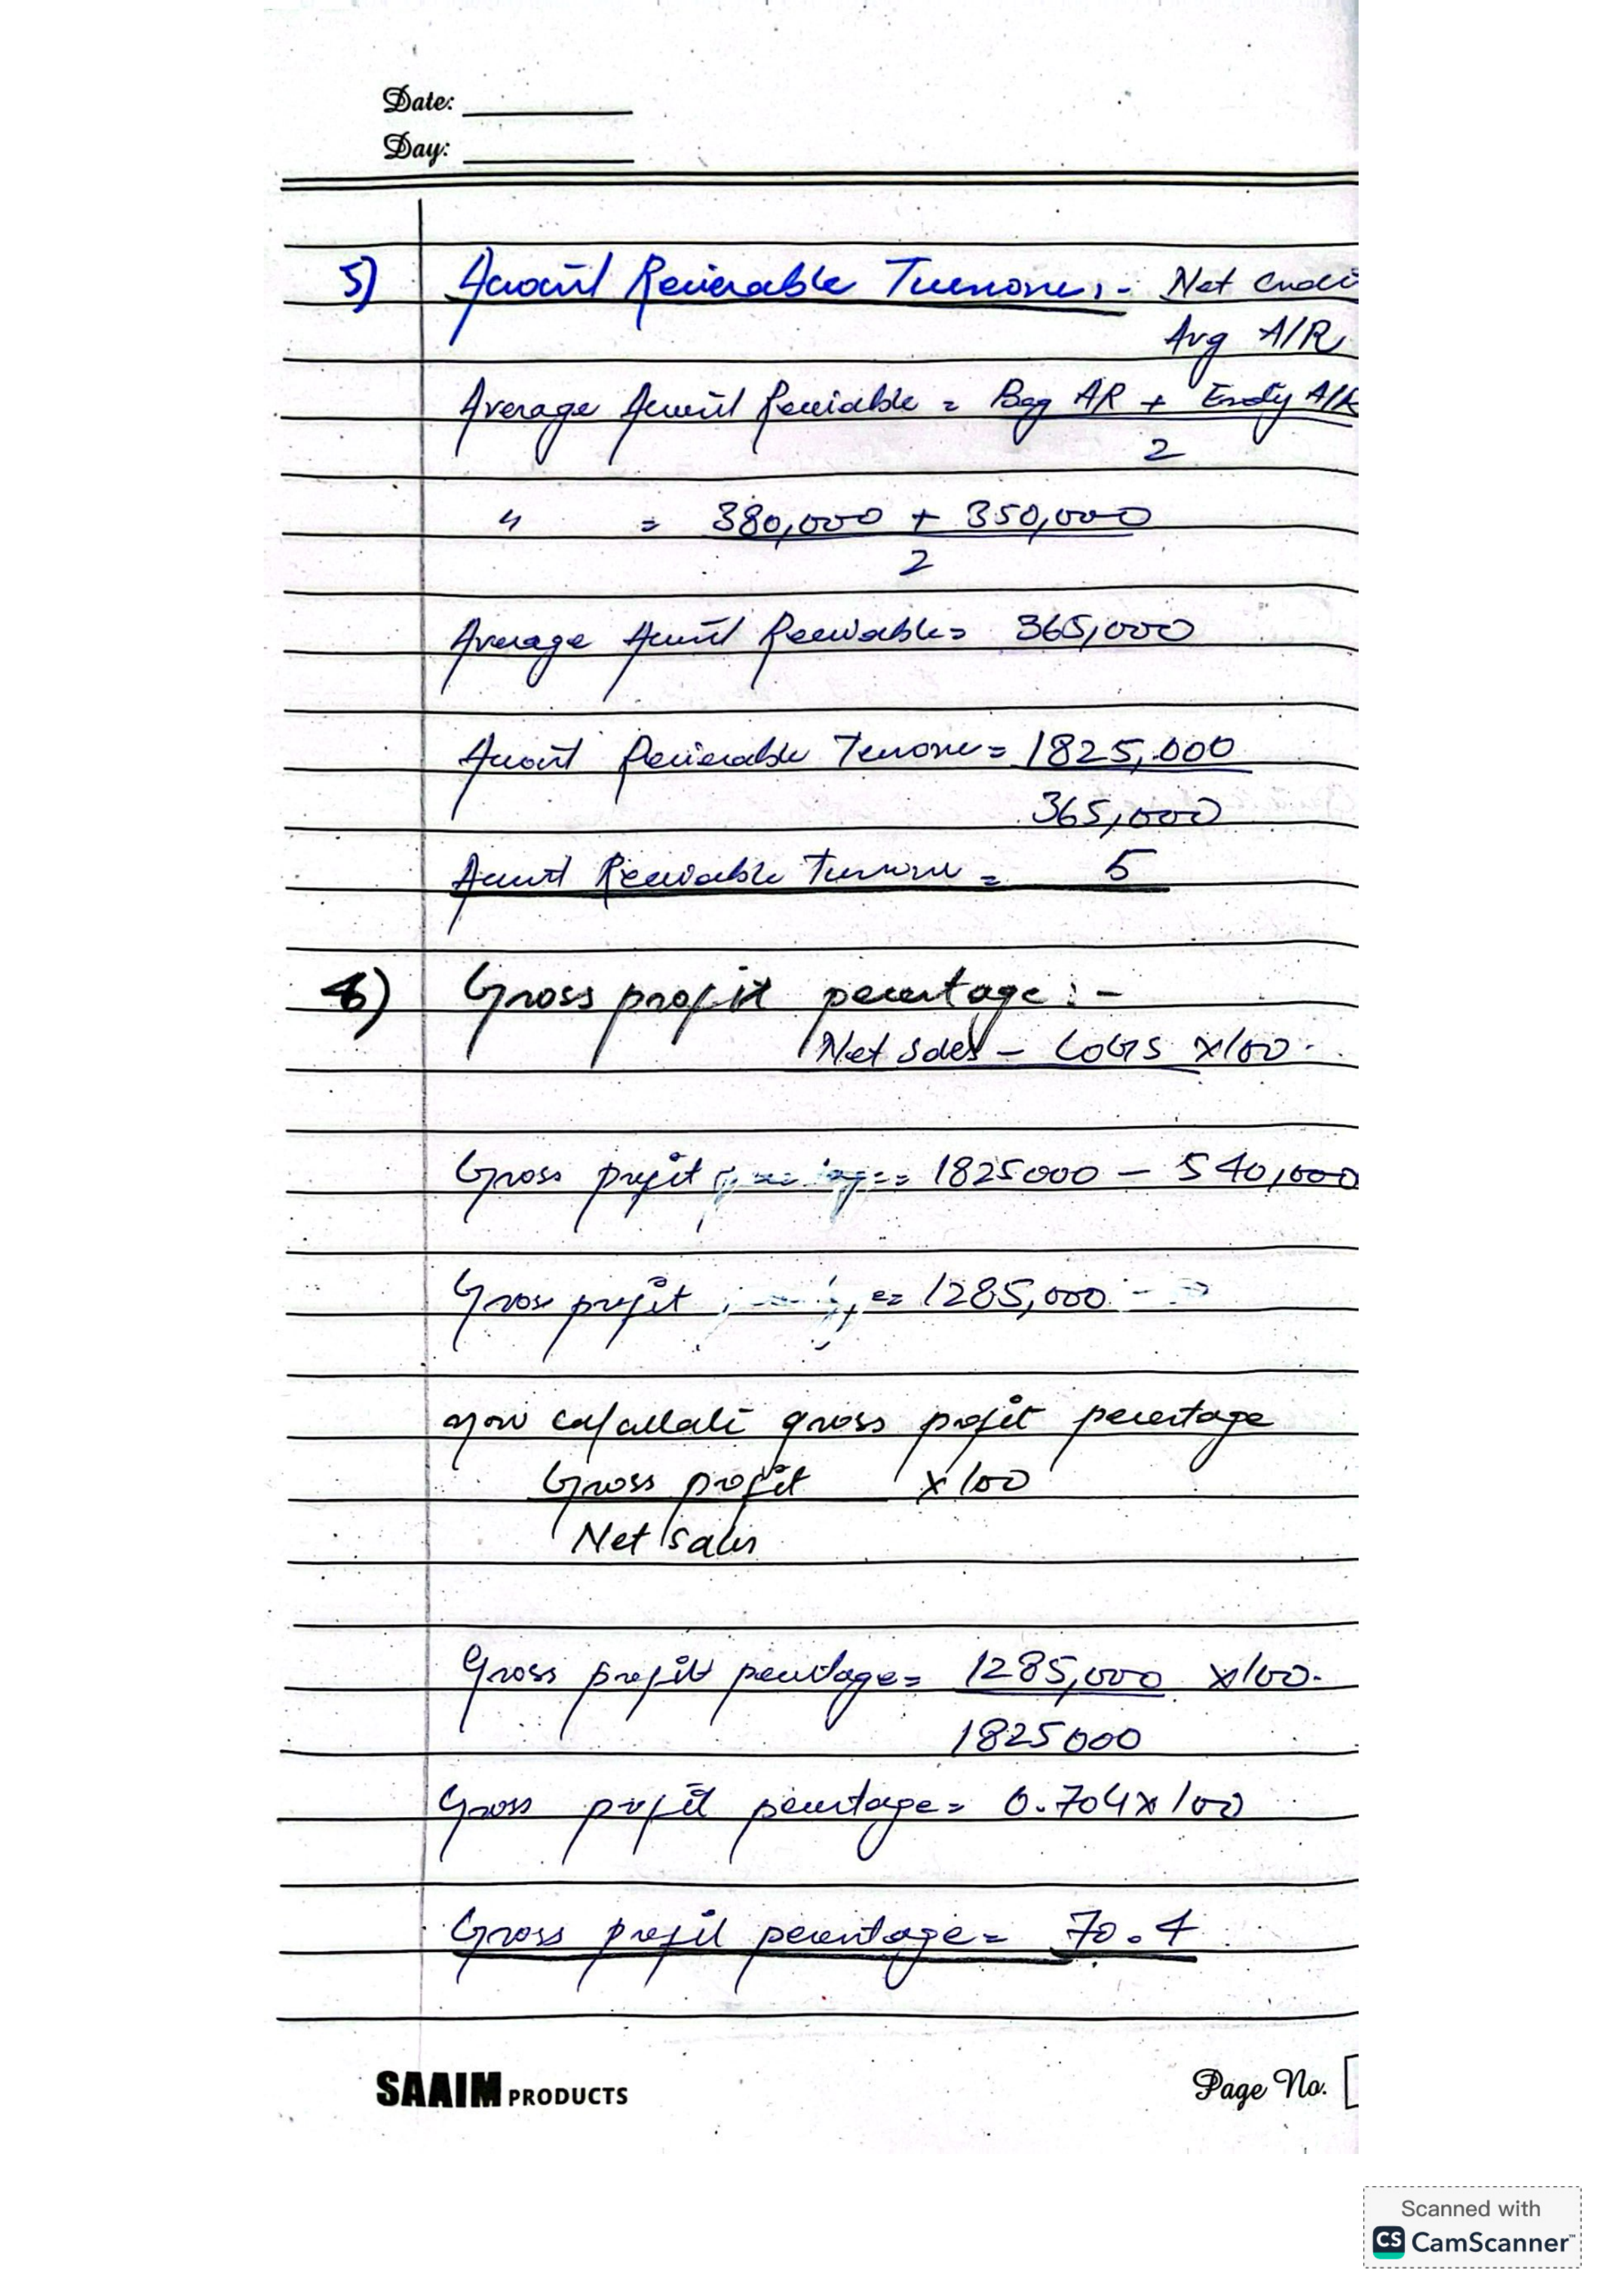 Date:
Day:
5) Account Receivable Turnover:- Net Credi
Avg A/R
Average Account Receivable = Beg AR + Endg A/R
2
" = 380,000 + 350,000
2
Average Account Receivable = 365,000
Account Receivable Turnover = 1825,000
365,000
Account Receivable Turnover = 5
6) Gross profit percentage :-
Net sales - COGS x100.
Gross profit = 1825000 - 540,000
Gross profit = 1285,000
now calculate gross profit percentage
Gross profit x100
Net sales
Gross profit percentage = 1285,000 x100.
1825000
Gross profit percentage = 0.704x100
Gross profit percentage = 70.4
SAAIM PRODUCTS
Page No.
Scanned with
CS CamScanner™